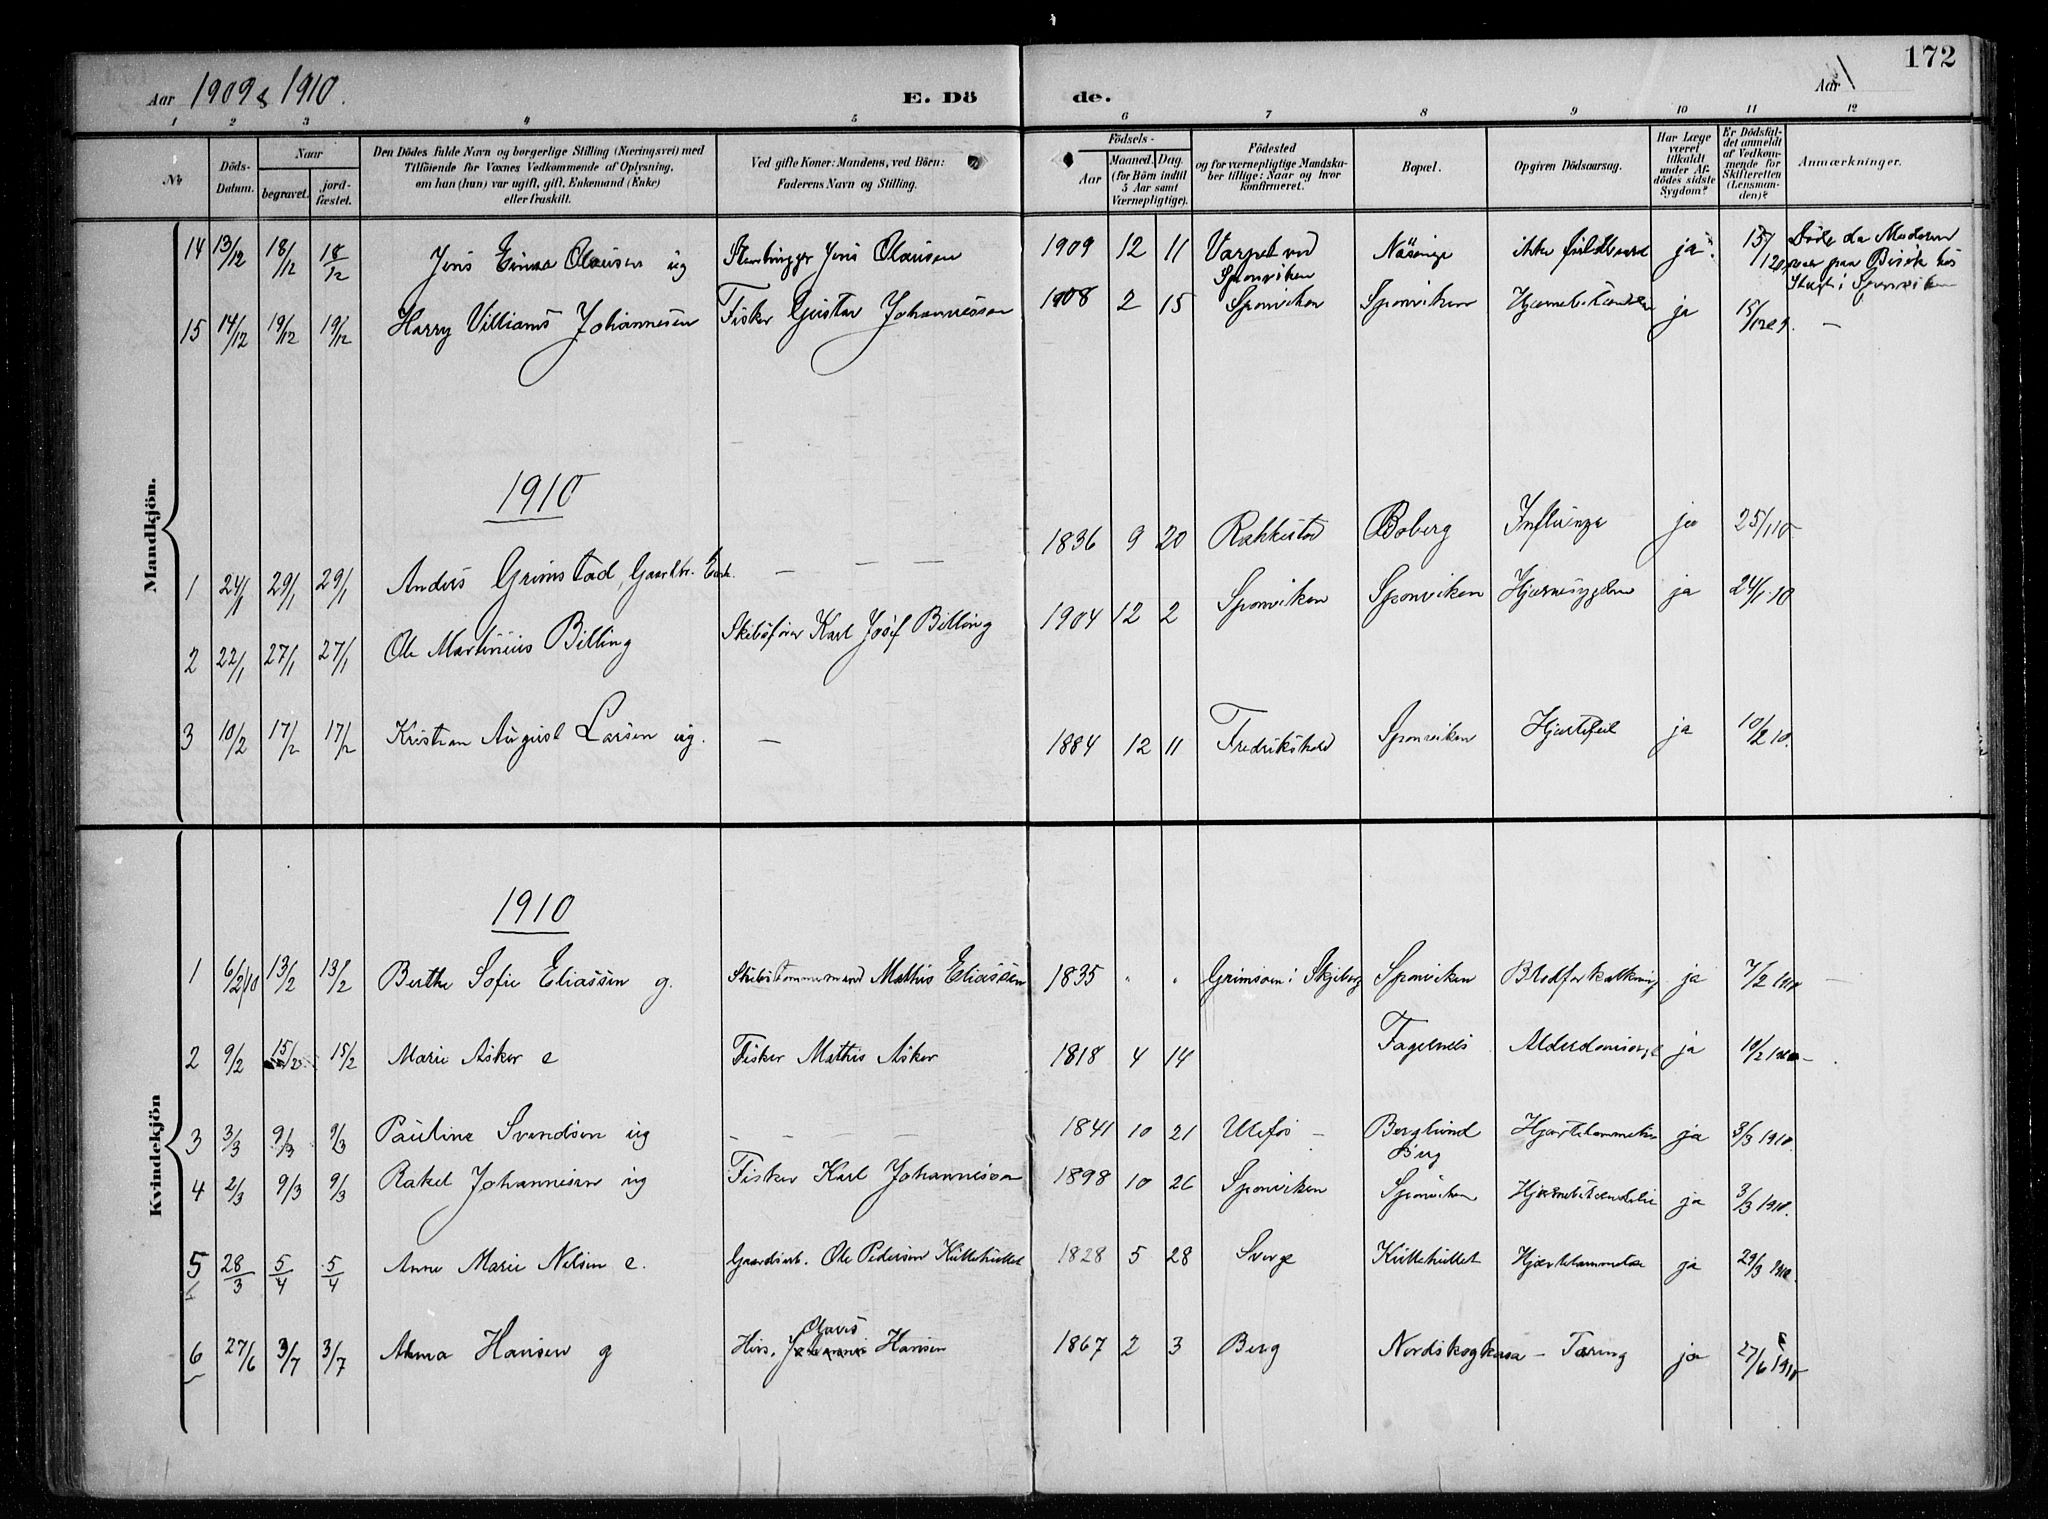 172
Aar 1909 & 1910. E. Dö de. Aar
1 2 3 4 5 6 7 8 9 10 11 12
No. Döds-Datum. Naar begravet. jord-fæstet. Den Dödes fulde Navn og borgerlige Stilling (Næringsvei) med Tilföiende for Voxnes Vedkommende af Oplysning, om han (hun) var ugift, gift, Enkemand (Enke) eller fraskilt. Ved gifte Koner: Mandens, ved Börn: Faderens Navn og Stilling. Födsels- Aar Maaned. Dag. (for Börn indtil 5 Aar samt Værnepligtige). Födested og for værnepligtige Mandska-ber tillige: Naar og hvor konfirmeret. Bopæl. Opgiven Dödsaarsag. Har Læge været tilkaldt under Af-dödes sidste Sygdom? Er Dödsfal-det anmeldt af Vedkom-mende for Skifteretten (Lensman-den)? Anmærkninger.
Mandkjön.
14 13/12 18/12 18/12 Jens Einar Olausen ug Stenhugger Jens Olausen 1909 12 11 Varpet ved Sponviken ikke fuldbaaren ja Døde da Moderen var paa Besøk hos i Sponviken
15 14/12 19/12 19/12 Harry Villiams Johannesen Fisker Gustav Johannessen 1908 2 15 Sponviken Sponviken ja 15/12 09. —
1910
1 24/1 29/1 29/1 Anders Grimstad, Gaardbr. Enk. — — — — 1836 9 20 Rakkestad Boberg Influenza ja 25/1 10
2 22/1 27/1 27/1 Ole Martinius Billing Skibsfører Karl Josef Billing 1904 12 2 Sponviken Sponviken Hjernesygdom ja 24/1 10
3 10/2 17/2 17/2 Kristian August Larsen ug. — 1884 12 11 Fredrikshald Sponviken Hjertefeil ja 10/2 10.
Kvindekjön
1910
1 6/2 10 13/2 13/2 Berthe Sofie Eliassen g. Skibstømmermand Mathis Eliassen 1835 " " Grimsøen i Skjeberg Sponviken Blodforkalkning ja 7/2 1910
2 9/2 15/2 15/2 Marie Asker e Fisker Mathis Asker 1818 4 14 Fagelnes ja 10/2 1910 —
3 3/3 9/3 9/3 Pauline Svendsen ug — — — 1841 10 21 Ulefos — Berglund Berg Hjertelammelse ja 3/3 1910.
4 2/3 9/3 9/3 Rakel Johannesen ug Fisker Karl Johannessen 1898 10 26 Sponviken Sponviken ja 3/3 1910.
5 28/3 5/4 5/4 Anne Marie Nilsen e. Gaardsarb. Ole Pedersen Küttehuttet 1828 5 28 Sverge Küttehuttet Hjertelammelse ja 29/3 1910.
6 27/6 3/7 3/7 Anna Hansen g Olaves Hansen 1867 2 3 Berg Tæring ja 27/6 1910